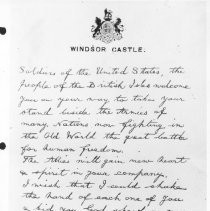 WINDSOR CASTLE.
Soldiers of the United States, the
people of the British Isles welcome
you on your way to take your
stand beside the Armies of
many Nations now fighting in
the Old World the great battle
for human freedom.
The Allies will gain new heart
& spirit in your company.
I wish that I could shake
the hand of each one of you
& bid you God speed